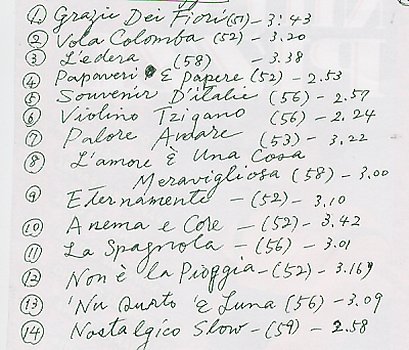 ① Grazie Dei Fiori (51) - 3.43
② Vola Colomba (52) - 3.20
③ L'edera (58) - 3.38
④ Papaveri E Papere (52) - 2.53
⑤ Souvenir D'italie (56) - 2.57
⑥ Violino Tzigano (56) - 2.24
⑦ Palore Amare (53) - 3.22
⑧ L'amore È Una Cosa
Meravigliosa (58) - 3.00
⑨ Eternamente - (52) - 3.10
⑩ Anema e Core - (52) - 3.42
⑪ La Spagnola - (56) - 3.01
⑫ Non è la Pioggia - (52) - 3.16
⑬ 'Nu Quarto 'e Luna (56) - 3.09
⑭ Nostalgico Slow - (59) - 2.58